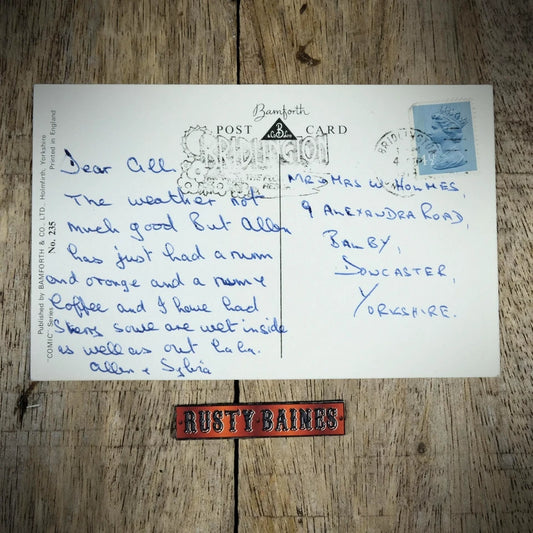 Bamforth
& Co Ltd
POST CARD
BRIDLINGTON
BRIDLINGTON
Dear All
The weather not
much good But Allen
has just had a rum
and orange and a rum &
Coffee and I have had
Sherry so we are wet inside
as well as out ha ha.
Allen & Sylvia
MR & MRS W. HOLMES,
9 ALEXANDRA ROAD,
BALBY,
DONCASTER,
YORKSHIRE.
Published by BAMFORTH & CO., LTD., Holmfirth, Yorkshire
Printed in England
"COMIC" Series
No. 235
RUSTY·BAINES